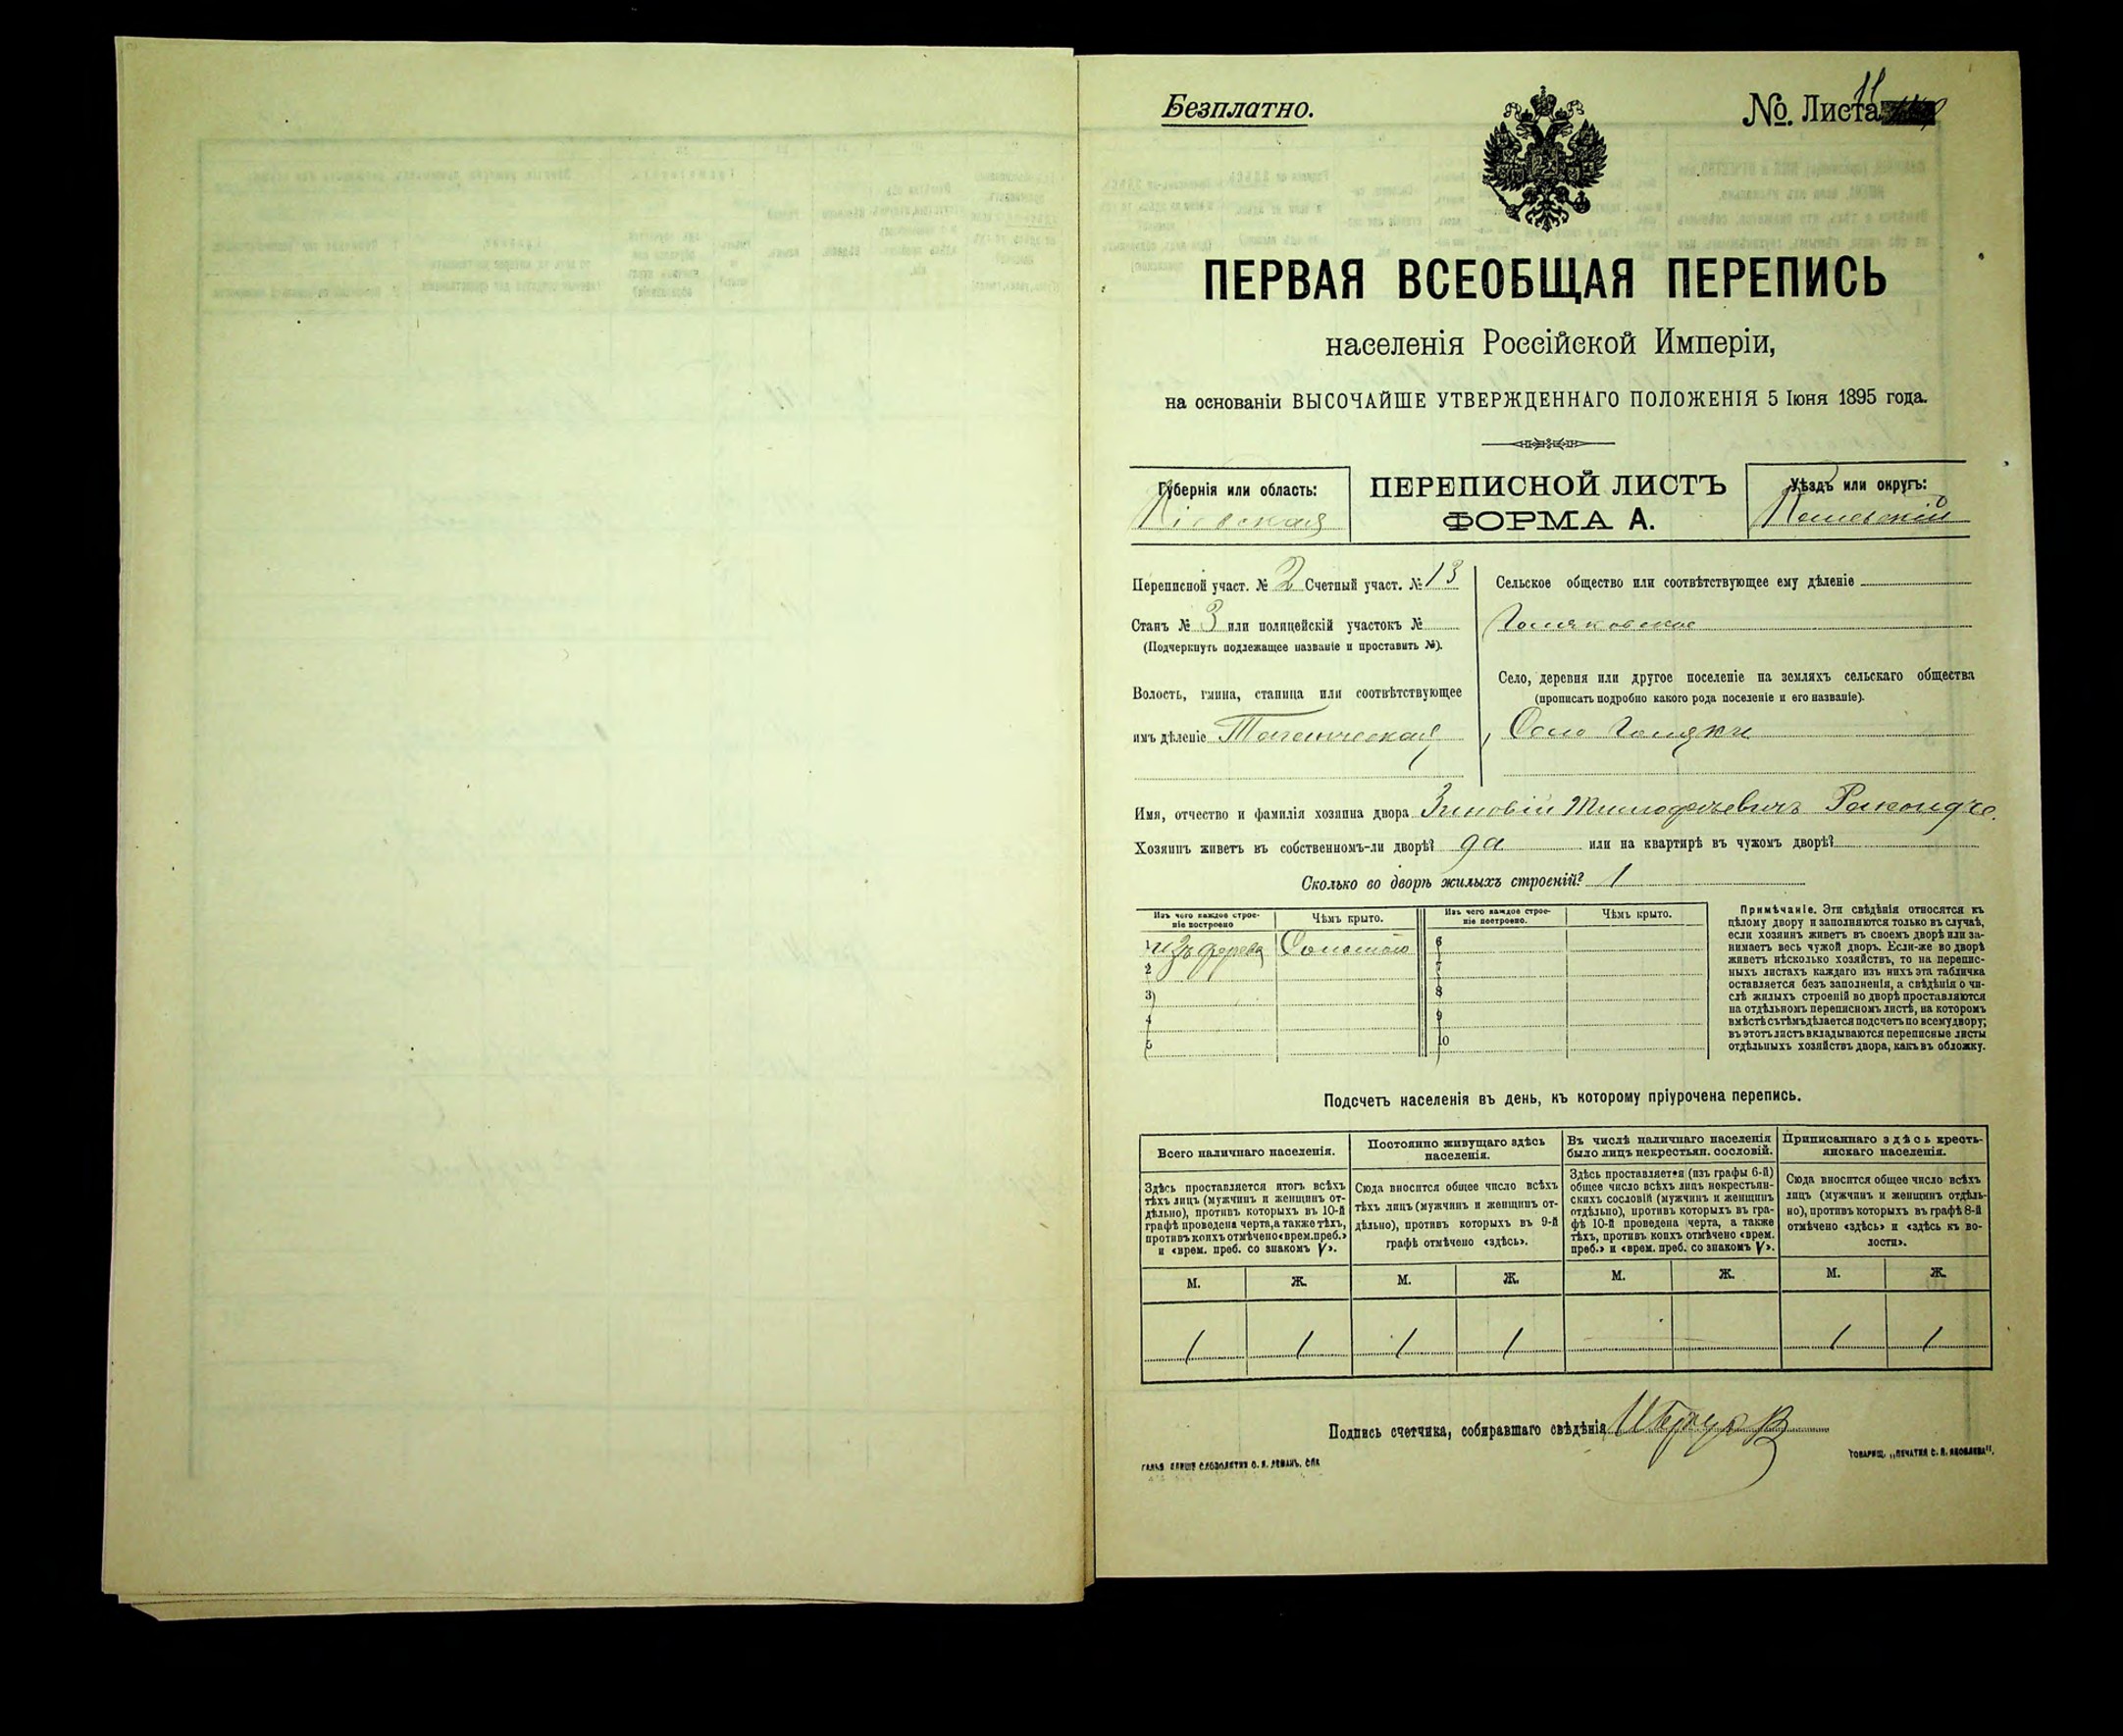 Безплатно.
№. Листа 11
ПЕРВАЯ ВСЕОБЩАЯ ПЕРЕПИСЬ
населенія Россійской Имперіи,
на основаніи ВЫСОЧАЙШЕ УТВЕРЖДЕННАГО ПОЛОЖЕНІЯ 5 Іюня 1895 года.
Губернія или область:
Кіевская
ПЕРЕПИСНОЙ ЛИСТЪ
ФОРМА А.
Уѣздъ или округъ:
Переписной участ. № 2 Счетный участ. № 13
Станъ № 3 или полицейскій участокъ №
(Подчеркнуть подлежащее названіе и проставить №).
Волость, гмина, станица или соотвѣтствующее
имъ дѣленіе
Сельское общество или соотвѣтствующее ему дѣленіе
Село, деревня или другое поселеніе на земляхъ сельскаго общества
(прописать подробно какого рода поселеніе и его названіе).
Село
Имя, отчество и фамилія хозяина двора Зиновій Тимофѣевичъ
Хозяинъ живетъ въ собственномъ-ли дворѣ? да или на квартирѣ въ чужомъ дворѣ?
Сколько во дворѣ жилыхъ строеній? 1
Изъ чего каждое строеніе построено
Чѣмъ крыто.
Изъ чего каждое строеніе построено.
Чѣмъ крыто.
1 изъ дерева Соломою 6
2 7
3) 8
4 9
5 10
Примѣчаніе. Эти свѣдѣнія относятся къ
цѣлому двору и заполняются только въ случаѣ,
если хозяинъ живетъ въ своемъ дворѣ или за-
нимаетъ весь чужой дворъ. Если-же во дворѣ
живетъ нѣсколько хозяйствъ, то на перепис-
ныхъ листахъ каждаго изъ нихъ эта табличка
оставляется безъ заполненія, а свѣдѣнія о чи-
слѣ жилыхъ строеній во дворѣ проставляются
на отдѣльномъ переписномъ листѣ, на которомъ
вмѣстѣ съ тѣмъ дѣлается подсчетъ по всему двору;
въ этотъ листъ вкладываются переписные листы
отдѣльныхъ хозяйствъ двора, какъ въ обложку.
Подсчетъ населенія въ день, къ которому пріурочена перепись.
Всего наличнаго населенія.
Здѣсь проставляется итогъ всѣхъ
тѣхъ лицъ (мужчинъ и женщинъ от-
дѣльно), противъ которыхъ въ 10-й
графѣ проведена черта, а также тѣхъ,
противъ коихъ отмѣчено «врем. преб.»
и «врем. преб. со знакомъ V».
Постоянно живущаго здѣсь
населенія.
Сюда вносится общее число всѣхъ
тѣхъ лицъ (мужчинъ и женщинъ от-
дѣльно), противъ которыхъ въ 9-й
графѣ отмѣчено «здѣсь».
Въ числѣ наличнаго населенія
было лицъ некрестьян. сословій.
Здѣсь проставляется (изъ графы 6-й)
общее число всѣхъ лицъ некрестьян-
скихъ сословій (мужчинъ и женщинъ
отдѣльно), противъ которыхъ въ гра-
фѣ 10-й проведена черта, а также
тѣхъ, противъ коихъ отмѣчено «врем.
преб.» и «врем. преб. со знакомъ V».
Приписаннаго здѣсь кресть-
янскаго населенія.
Сюда вносится общее число всѣхъ
лицъ (мужчинъ и женщинъ отдѣль-
но), противъ которыхъ въ графѣ 8-й
отмѣчено «здѣсь» и «здѣсь къ во-
лости».
М. Ж. М. Ж. М. Ж. М. Ж.
1 1 1 1 1 1
Подпись счетчика, собиравшаго свѣдѣнія
ТОВАРИЩ. „ПЕЧАТНЯ С. П. ЯКОВЛЕВА".